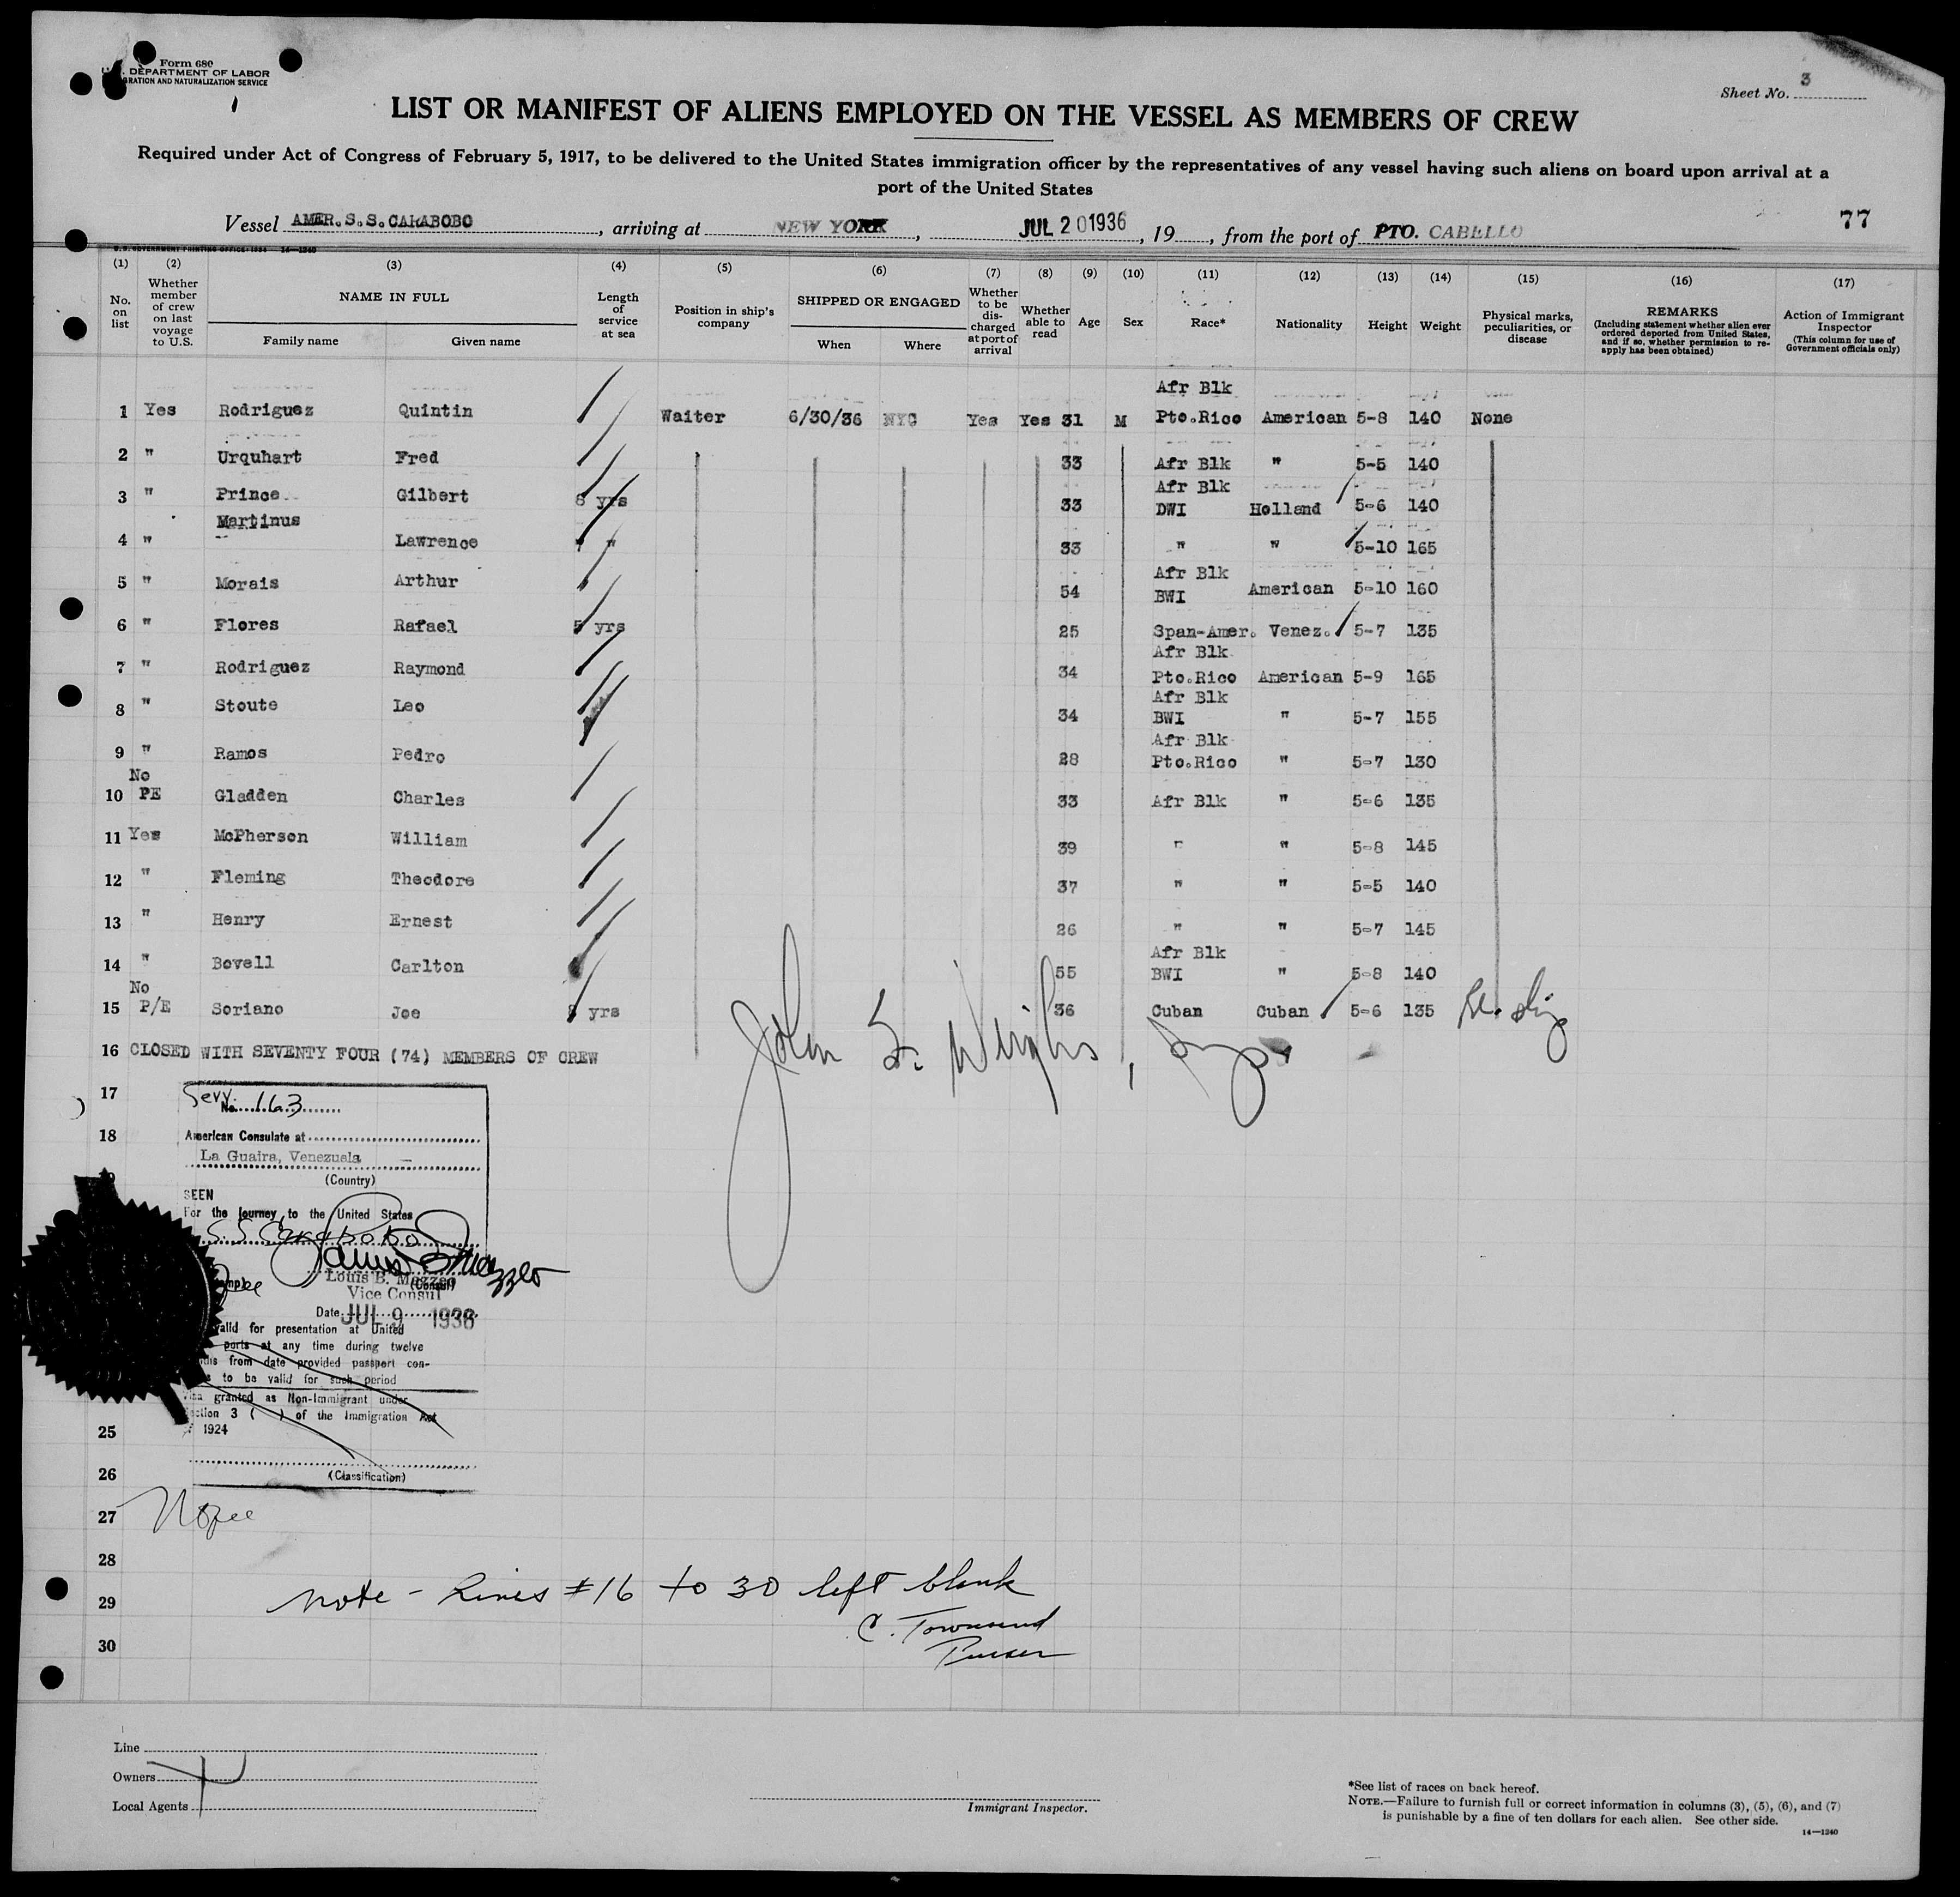 Form 680
U. S. DEPARTMENT OF LABOR
IMMIGRATION AND NATURALIZATION SERVICE
Sheet No. 3
LIST OR MANIFEST OF ALIENS EMPLOYED ON THE VESSEL AS MEMBERS OF CREW
Required under Act of Congress of February 5, 1917, to be delivered to the United States immigration officer by the representatives of any vessel having such aliens on board upon arrival at a
port of the United States
Vessel AMER.S.S.CARABOBO, arriving at NEW YORK, JUL 20 1936, 19, from the port of PTO. CABELLO
77
U. S. GOVERNMENT PRINTING OFFICE: 1934 14—1240
(1) (2) (3) (4) (5) (6) (7) (8) (9) (10) (11) (12) (13) (14) (15) (16) (17)
No. on list
Whether member of crew on last voyage to U.S.
NAME IN FULL
Family name
Given name
Length of service at sea
Position in ship's company
SHIPPED OR ENGAGED
When
Where
Whether to be discharged at port of arrival
Whether able to read
Age
Sex
Race*
Nationality
Height
Weight
Physical marks, peculiarities, or disease
REMARKS
(Including statement whether alien ever ordered deported from United States, and if so, whether permission to re-apply has been obtained)
Action of Immigrant Inspector
(This column for use of Government officials only)
Afr Blk
1 Yes Rodriguez Quintin Waiter 6/30/36 NYC Yes Yes 31 M Pto.Rico American 5-8 140 None
2 " Urquhart Fred 33 Afr Blk " 5-5 140
Afr Blk
3 " Prince Gilbert 8 yrs 33 DWI Holland 5-6 140
Martinus
4 " Lawrence " 33 " " 5-10 165
Afr Blk
5 " Morais Arthur 54 BWI American 5-10 160
6 " Flores Rafael 5 yrs 25 Span-Amer. Venez. 5-7 135
Afr Blk
7 " Rodriguez Raymond 34 Pto.Rico American 5-9 165
Afr Blk
8 " Stoute Leo 34 BWI " 5-7 155
Afr Blk
9 " Ramos Pedro 28 Pto.Rico " 5-7 130
No
10 PE Gladden Charles 33 Afr Blk " 5-6 135
11 Yes McPherson William 39 " " 5-8 145
12 " Fleming Theodore 37 " " 5-5 140
13 " Henry Ernest 26 " " 5-7 145
Afr Blk
14 " Bovell Carlton 55 BWI " 5-8 140
No
15 P/E Soriano Joe yrs 36 Cuban Cuban 5-6 135
16 CLOSED WITH SEVENTY FOUR (74) MEMBERS OF CREW
17
No. 163
18
American Consulate at
La Guaira, Venezuela
(Country)
SEEN
For the journey to the United States
S.S. Carabobo
Louis B. Mazzeo
(Consul)
Vice Consul
Date JUL 9 1936
valid for presentation at United
ports at any time during twelve
from date provided passport con-
to be valid for such period
Visa granted as Non-Immigrant under
Section 3 ( ) of the Immigration Act
of 1924
(Classification)
25
26
27 No fee
28
29
30
Note - Lines #16 to 30 left blank
C. Townsend
Purser
Line
Owners
Local Agents
Immigrant Inspector.
*See list of races on back hereof.
NOTE.—Failure to furnish full or correct information in columns (3), (5), (6), and (7)
is punishable by a fine of ten dollars for each alien. See other side.
14—1240